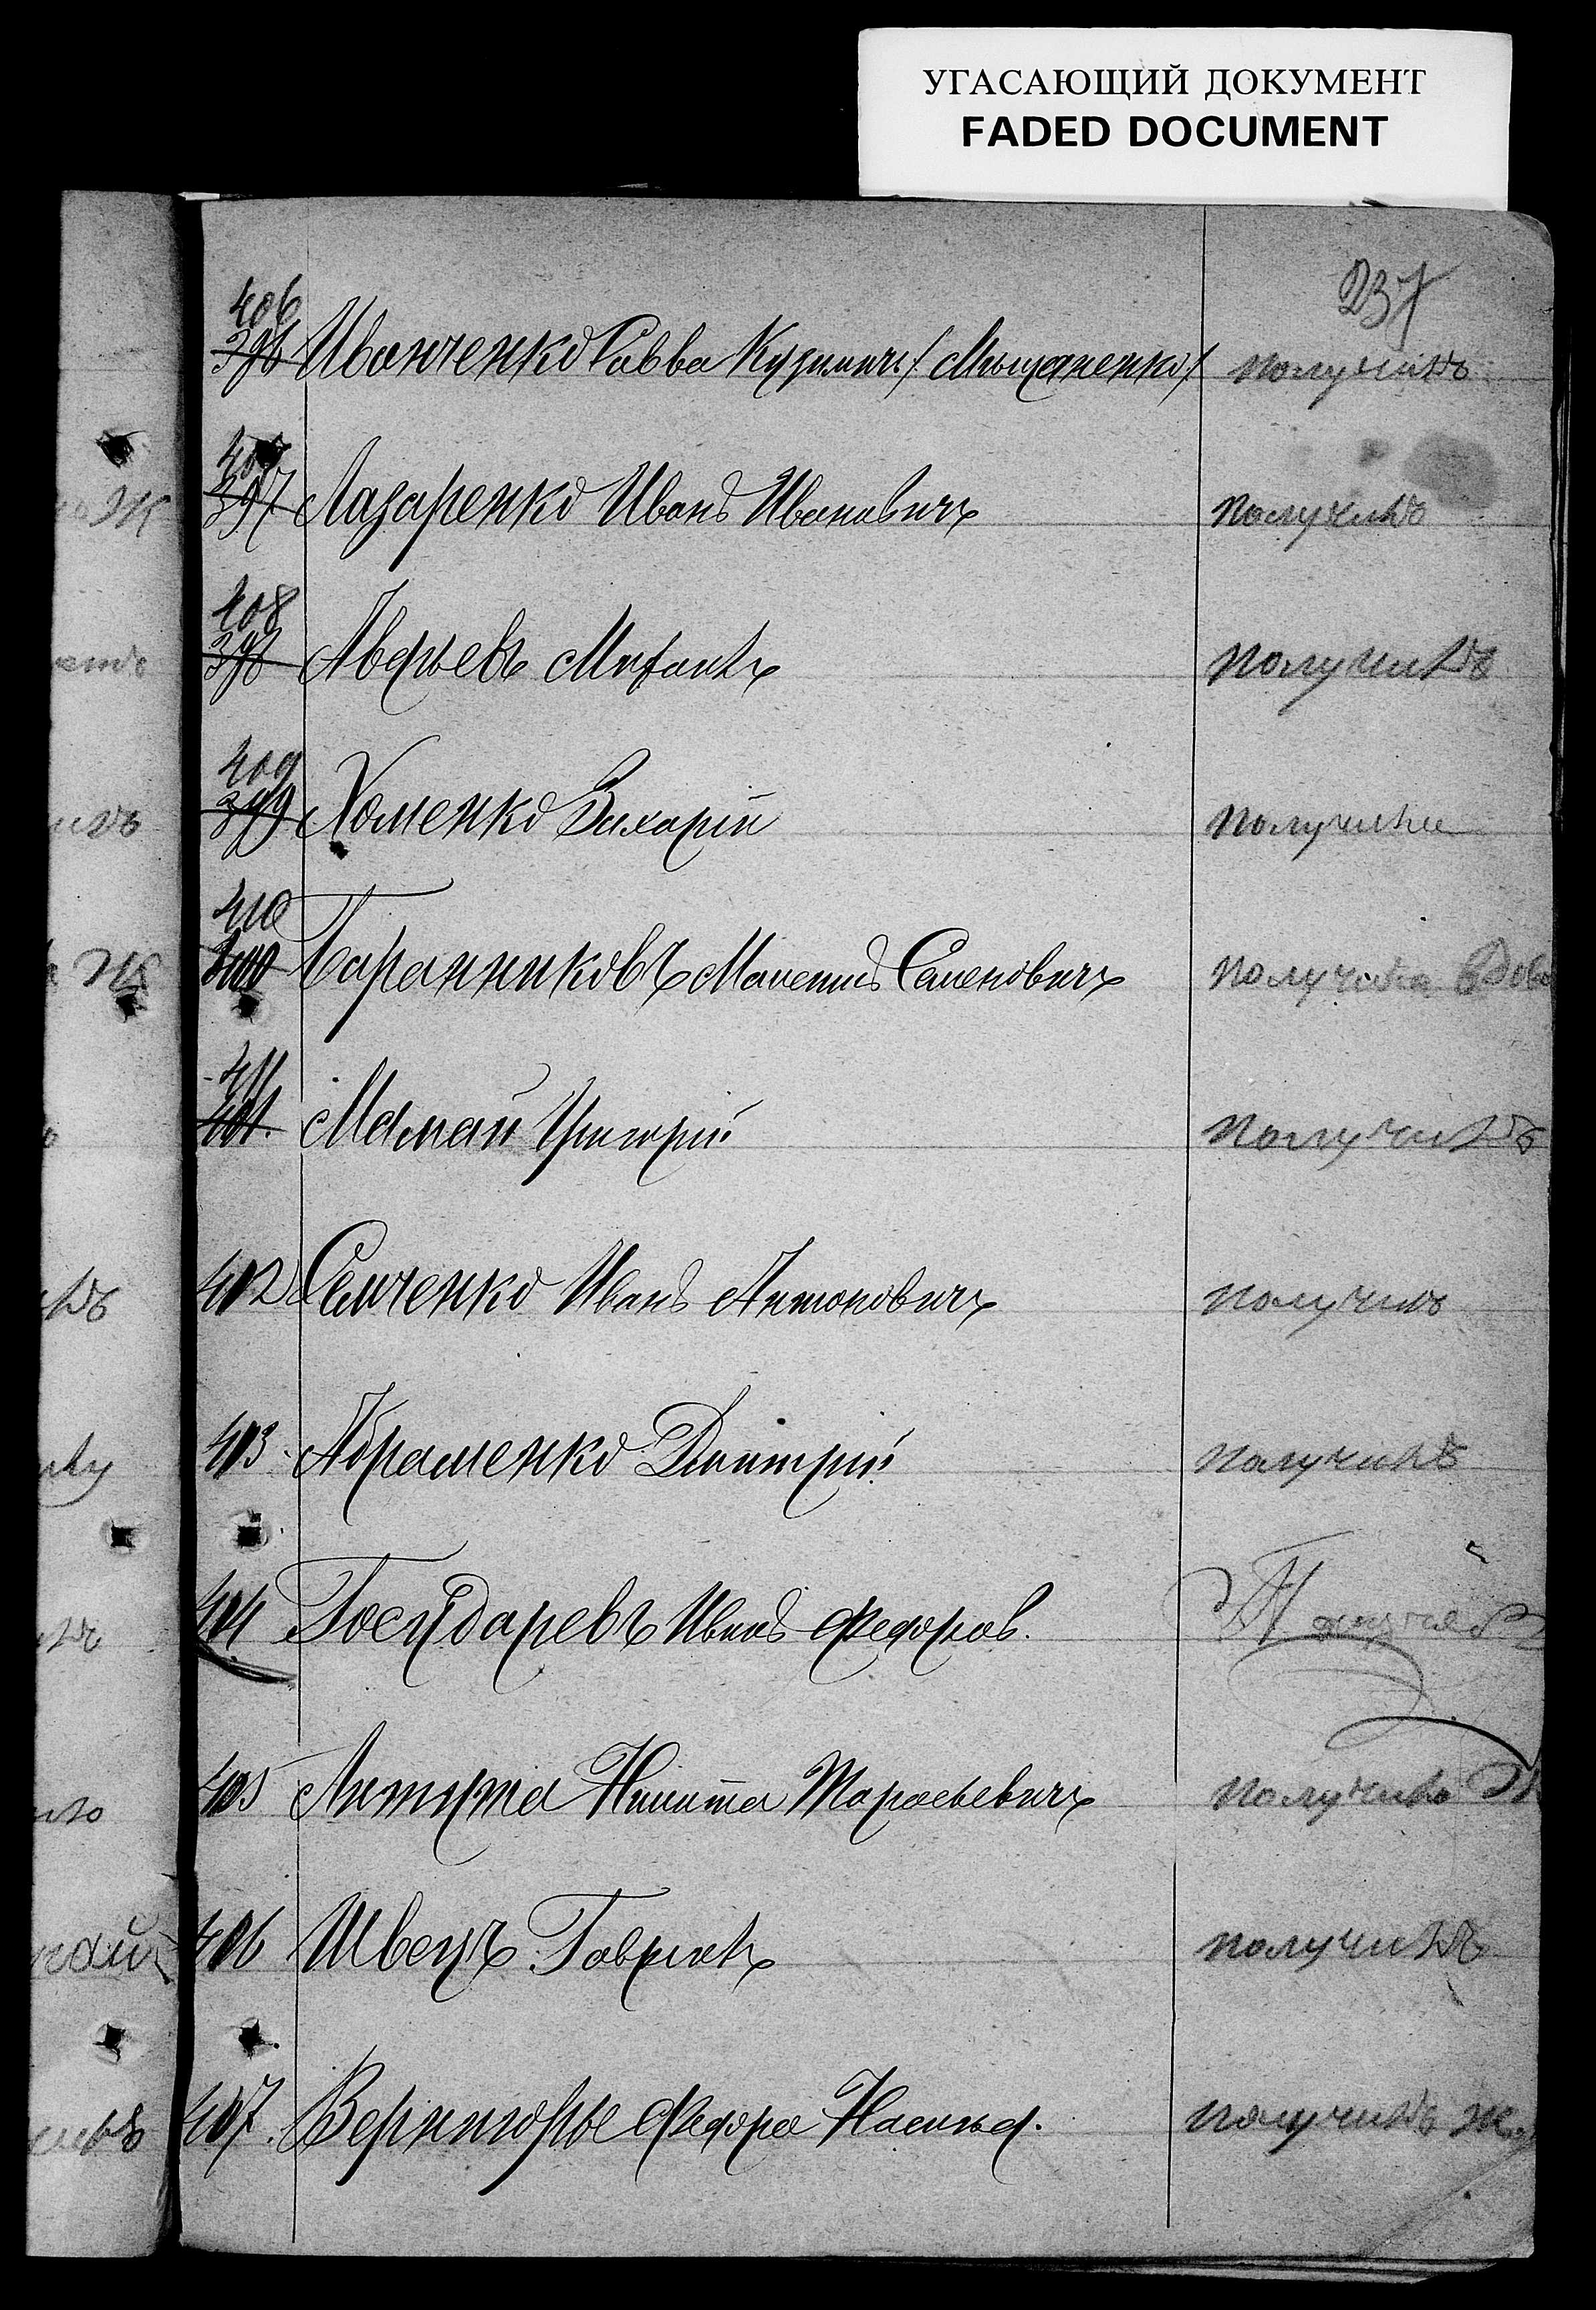 УГАСАЮЩИЙ ДОКУМЕНТ
FADED DOCUMENT
237
406
396 Иванченко Савва Кузьмичъ /Мищаненко/ получилъ
407
397 Лазаренко Иванъ Ивановичъ получилъ
408
398 Аверьевъ Митанъ получилъ
409
399 Хоменко Захарій получили
410
400 Баранниковъ Семеновичъ получила вдова
411
401. Мамай Григорій получилъ
412 Семченко Иванъ Антоновичъ получилъ
413 Абраменко Дмитрій получилъ
414 Государевъ Иванъ Федоров.
415 Никита Тарасьевичъ получилъ
416 Швецъ Гаврилъ получилъ
407. Федора получилъ